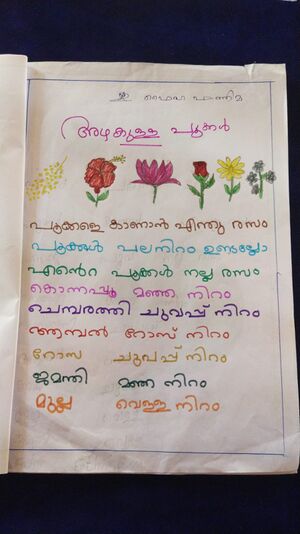 അഴകുള്ള പൂക്കൾ
പൂക്കളെ കാണാൻ എന്തു രസം
പൂക്കൾ പലനിറം ഉണ്ടല്ലോ
എൻ്റെ പൂക്കൾ നല്ല രസം
കൊന്നപ്പൂ മഞ്ഞ നിറം
ചെമ്പരത്തി ചുവപ്പ് നിറം
ആമ്പൽ റോസ് നിറം
റോസ ചുവപ്പ് നിറം
ജമന്തി മഞ്ഞ നിറം
മുല്ല വെള്ള നിറം